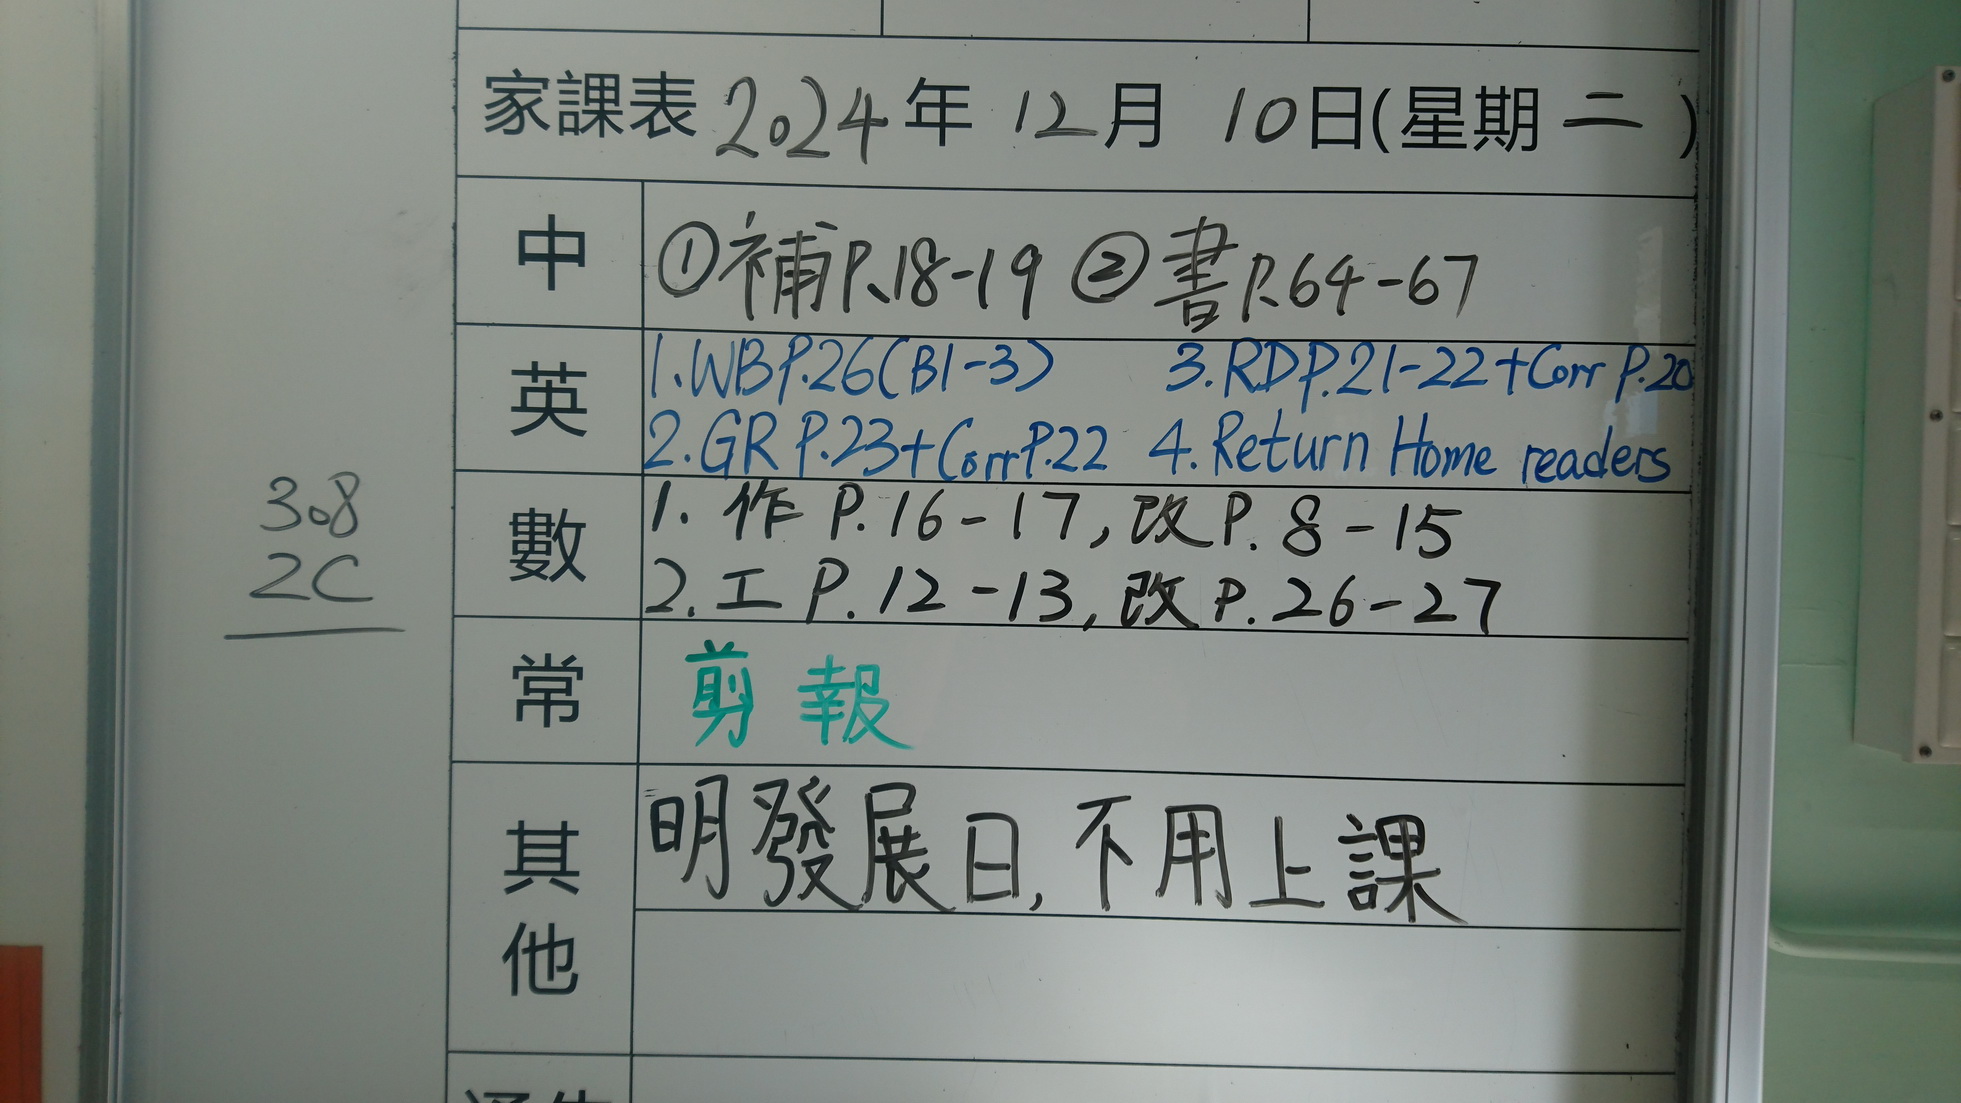 家課表 2024年 12月 10日(星期二)
中 ①補P.18-19 ②書P.64-67
英 1.WB P.26(B1-3) 3.RD P.21-22+Corr P.20
2.GR P.23+Corr P.22 4.Return Home readers
3.8
2C
數 1. 作 P.16-17,改P.8-15
2.工 P.12-13,改P.26-27
常 剪報
其他 明發展日,不用上課